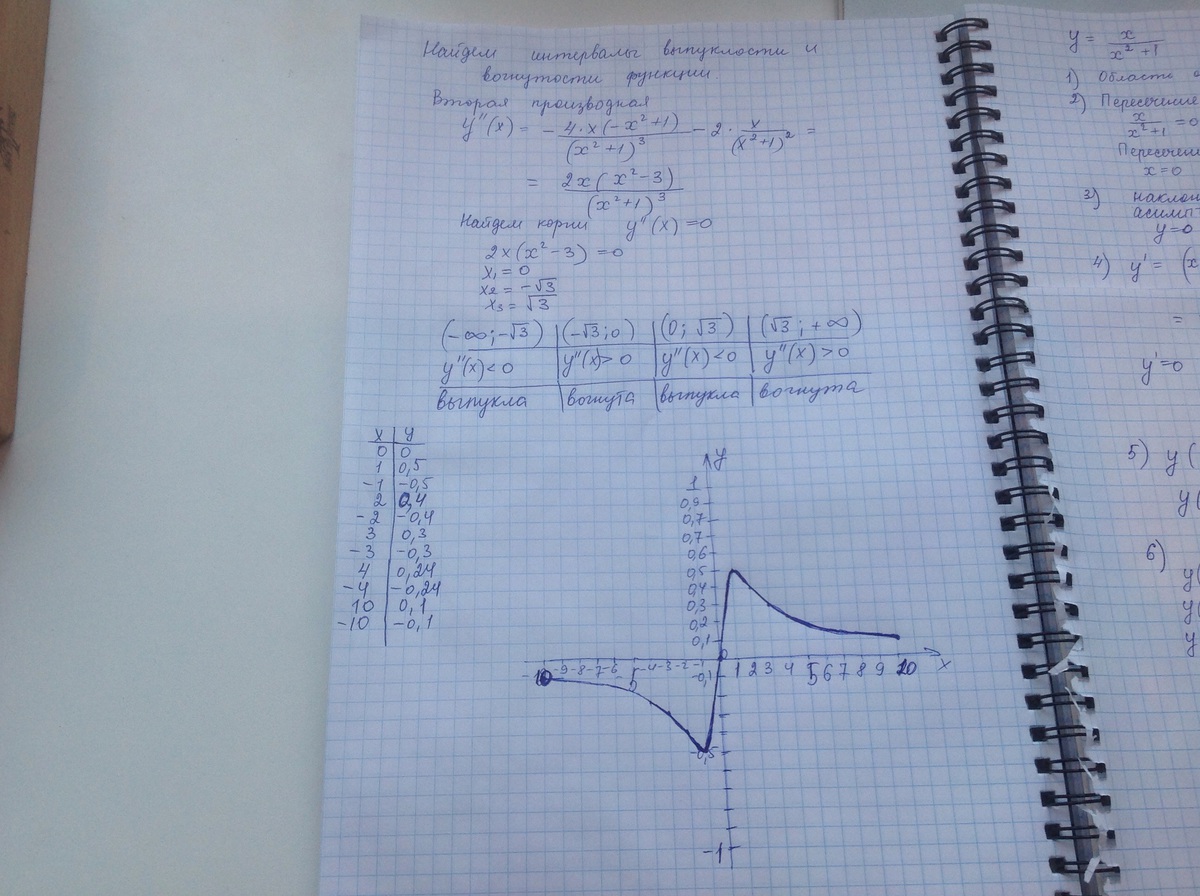 Найдем интервалы выпуклости и
вогнутости функции.
Вторая производная
y''(x) = - 4·x(-x²+1)/(x²+1)³ - 2· x/(x²+1)² =
= 2x(x²-3)/(x²+1)³
Найдем корни y''(x)=0
2x(x²-3)=0
x₁=0
x₂=-√3
x₃=√3
(-∞;-√3) | (-√3;0) | (0;√3) | (√3;+∞)
y''(x)<0 | y''(x)>0 | y''(x)<0 | y''(x)>0
выпукла | вогнута | выпукла | вогнута
x | y
0 | 0
1 | 0,5
-1 | -0,5
2 | 0,4
-2 | -0,4
3 | 0,3
-3 | -0,3
4 | 0,24
-4 | -0,24
10 | 0,1
-10 | -0,1
y
1
0,9
0,7
0,7
0,6
0,5
0,4
0,3
0,2
0,1
0
-10 -9 -8 -7 -6 -4 -3 -2 1 2 3 4 5 6 7 8 9 10 x
-0,1
-0,5
-1
y = x/(x²+1)
1) Область
2) Пересечение
x/(x²+1) =0
x=0
3)
y=0
4) y' = (x
=
y'=0
5) y(
y(
6)
y(
y(
y